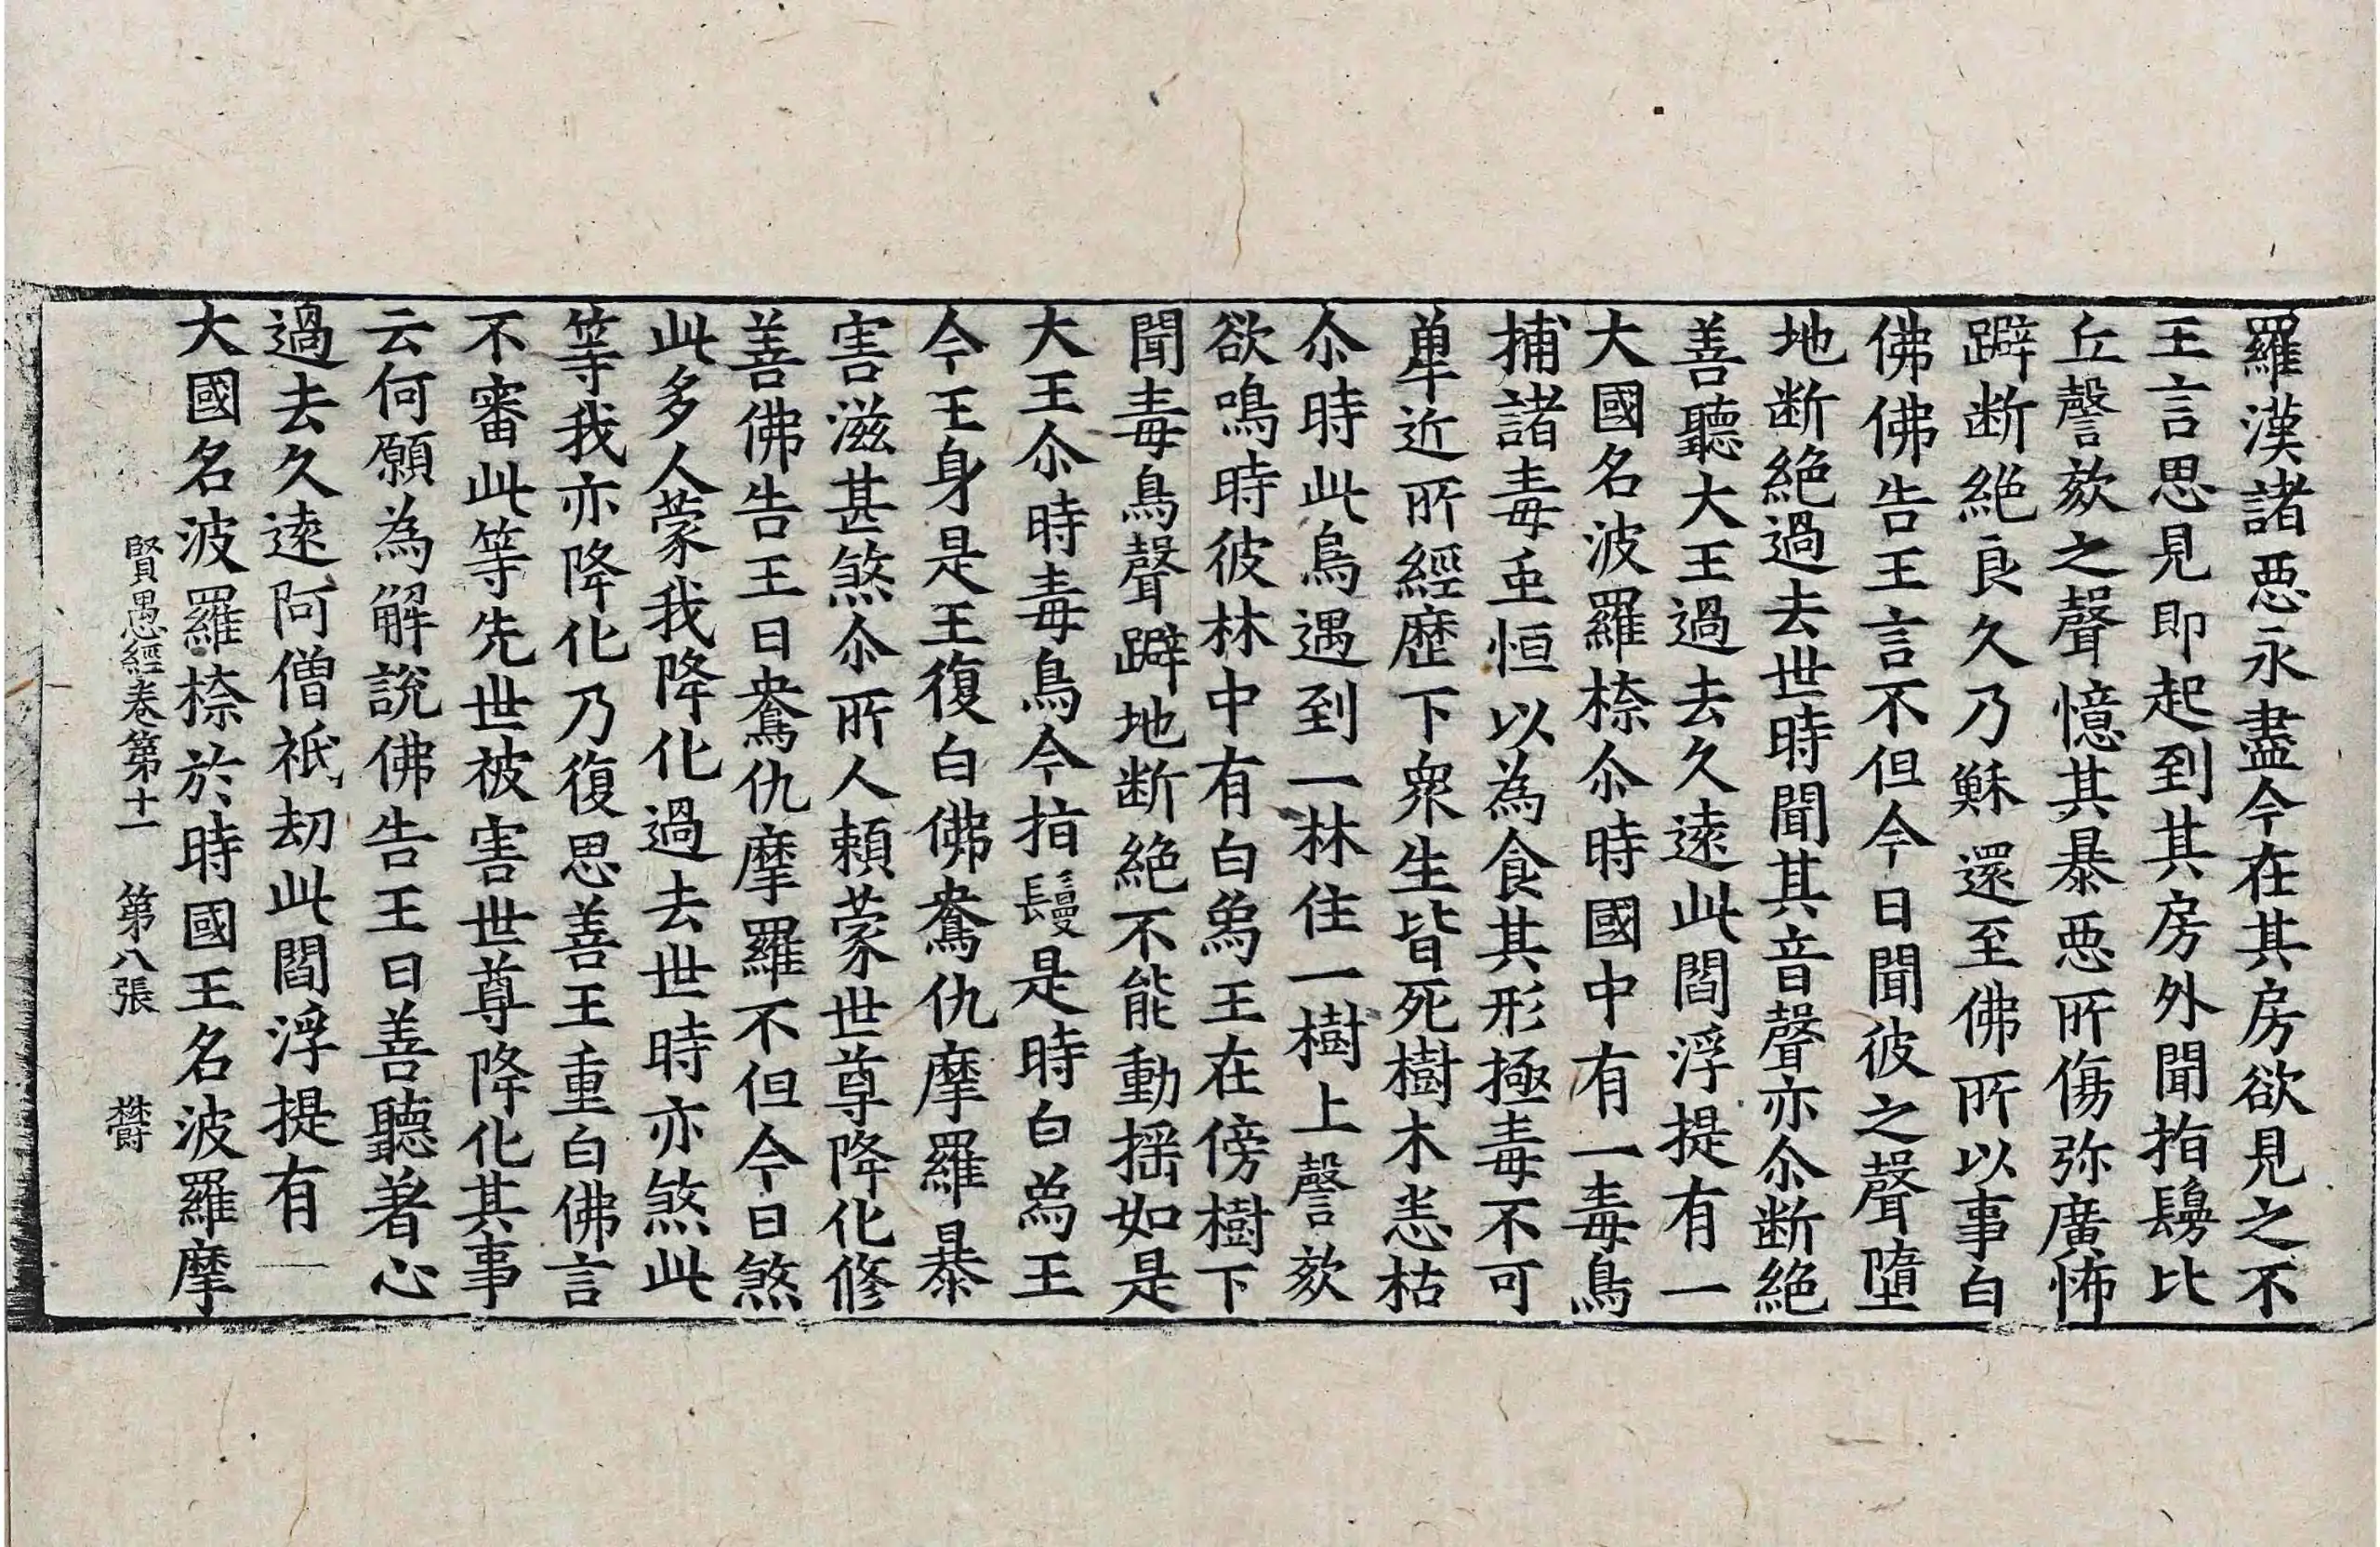 羅漢諸惡永盡今在其房欲見之不
王言思見即起到其房外聞指鬘比
丘謦欬之聲憶其暴惡所傷弥廣怖
躃断絶良久乃穌還至佛所以事白
佛佛告王言不但今日聞彼之聲墮
地断絶過去世時聞其音聲亦尒断絶
善聽大王過去久遠此閻浮提有一
大國名波羅㮈尒時國中有一毒鳥
捕諸毒䖝恒以為食其形極毒不可
單近所經歷下衆生皆死樹木恙枯
尒時此鳥遇到一林住一樹上謦欬
欲鳴時彼林中有白為王在傍樹下
聞毒鳥聲躃地断絶不能動揺如是
大王尒時毒鳥今指鬘是時白為王
今王身是王復白佛鴦仇摩羅暴
害滋甚煞尒所人頼蒙世尊降化修
善佛告王曰鴦仇摩羅不但今日煞
此多人蒙我降化過去世時亦煞此
等我亦降化乃復思善王重白佛言
不審此等先世被害世尊降化其事
云何願為解説佛告王曰善聽著心
過去久遠阿僧祇劫此閻浮提有一
大國名波羅㮈於時國王名波羅摩
賢愚經卷第十一 第八張 欝